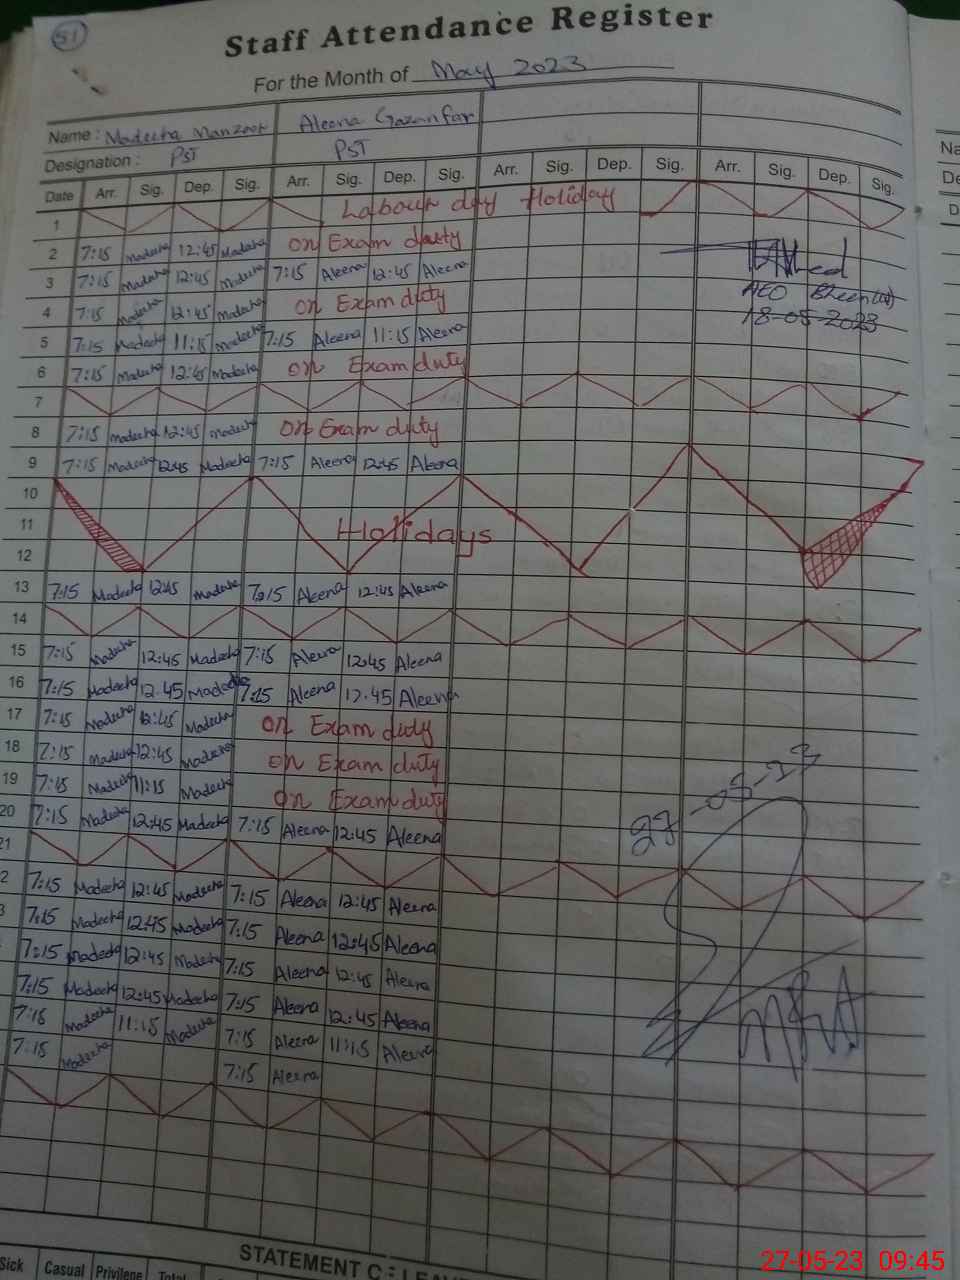 51
Staff Attendance Register
For the Month of May 2023
Name : Madeeha Manzoor Aleena Gazanfar
Designation : PST PST
Date Arr. Sig. Dep. Sig. Arr. Sig. Dep. Sig. Arr. Sig. Dep. Sig. Arr. Sig. Dep. Sig.
1 Labour day Holiday
2 7:15 Madeeha 12:45 Madeeha on Exam duty
3 7:15 Madeeha 12:45 Madeeha 7:15 Aleena 12:45 Aleena
4 7:15 Madeeha 12:45 Madeeha on Exam duty
AEO
18-05-2023
5 7:15 Madeeha 11:15 Madeeha 7:15 Aleena 11:15 Aleena
6 7:15 Madeeha 12:45 Madeeha on Exam duty
7
8 7:15 Madeeha 12:45 Madeeha on Exam duty
9 7:15 Madeeha 12:45 Madeeha 7:15 Aleena 12:45 Aleena
10
11 Holidays
12
13 7:15 Madeeha 12:45 Madeeha 7:15 Aleena 12:45 Aleena
14
15 7:15 Madeeha 12:45 Madeeha 7:15 Aleena 12:45 Aleena
16 7:15 Madeeha 12.45 Madeeha 7:15 Aleena 12.45 Aleena
17 7:15 Madeeha 12:45 Madeeha on Exam duty
18 7:15 Madeeha 12:45 Madeeha on Exam duty
19 7:15 Madeeha 11:15 Madeeha on Exam duty
20 7:15 Madeeha 12:45 Madeeha 7:15 Aleena 12:45 Aleena
27-05-23
21
2 7:15 Madeeha 12:45 Madeeha 7:15 Aleena 12:45 Aleena
3 7:15 Madeeha 12:45 Madeeha 7:15 Aleena 12:45 Aleena
7:15 Madeeha 12:45 Madeeha 7:15 Aleena 12:45 Aleena
7:15 Madeeha 12:45 Madeeha 7:15 Aleena 12:45 Aleena
7:15 Madeeha 11:15 Madeeha 7:15 Aleena 11:15 Aleena
7:15 Madeeha 7:15 Aleena
STATEMENT OF LEAVE
Sick Casual Privilege Total
Na
De
D
27-05-23 09:45